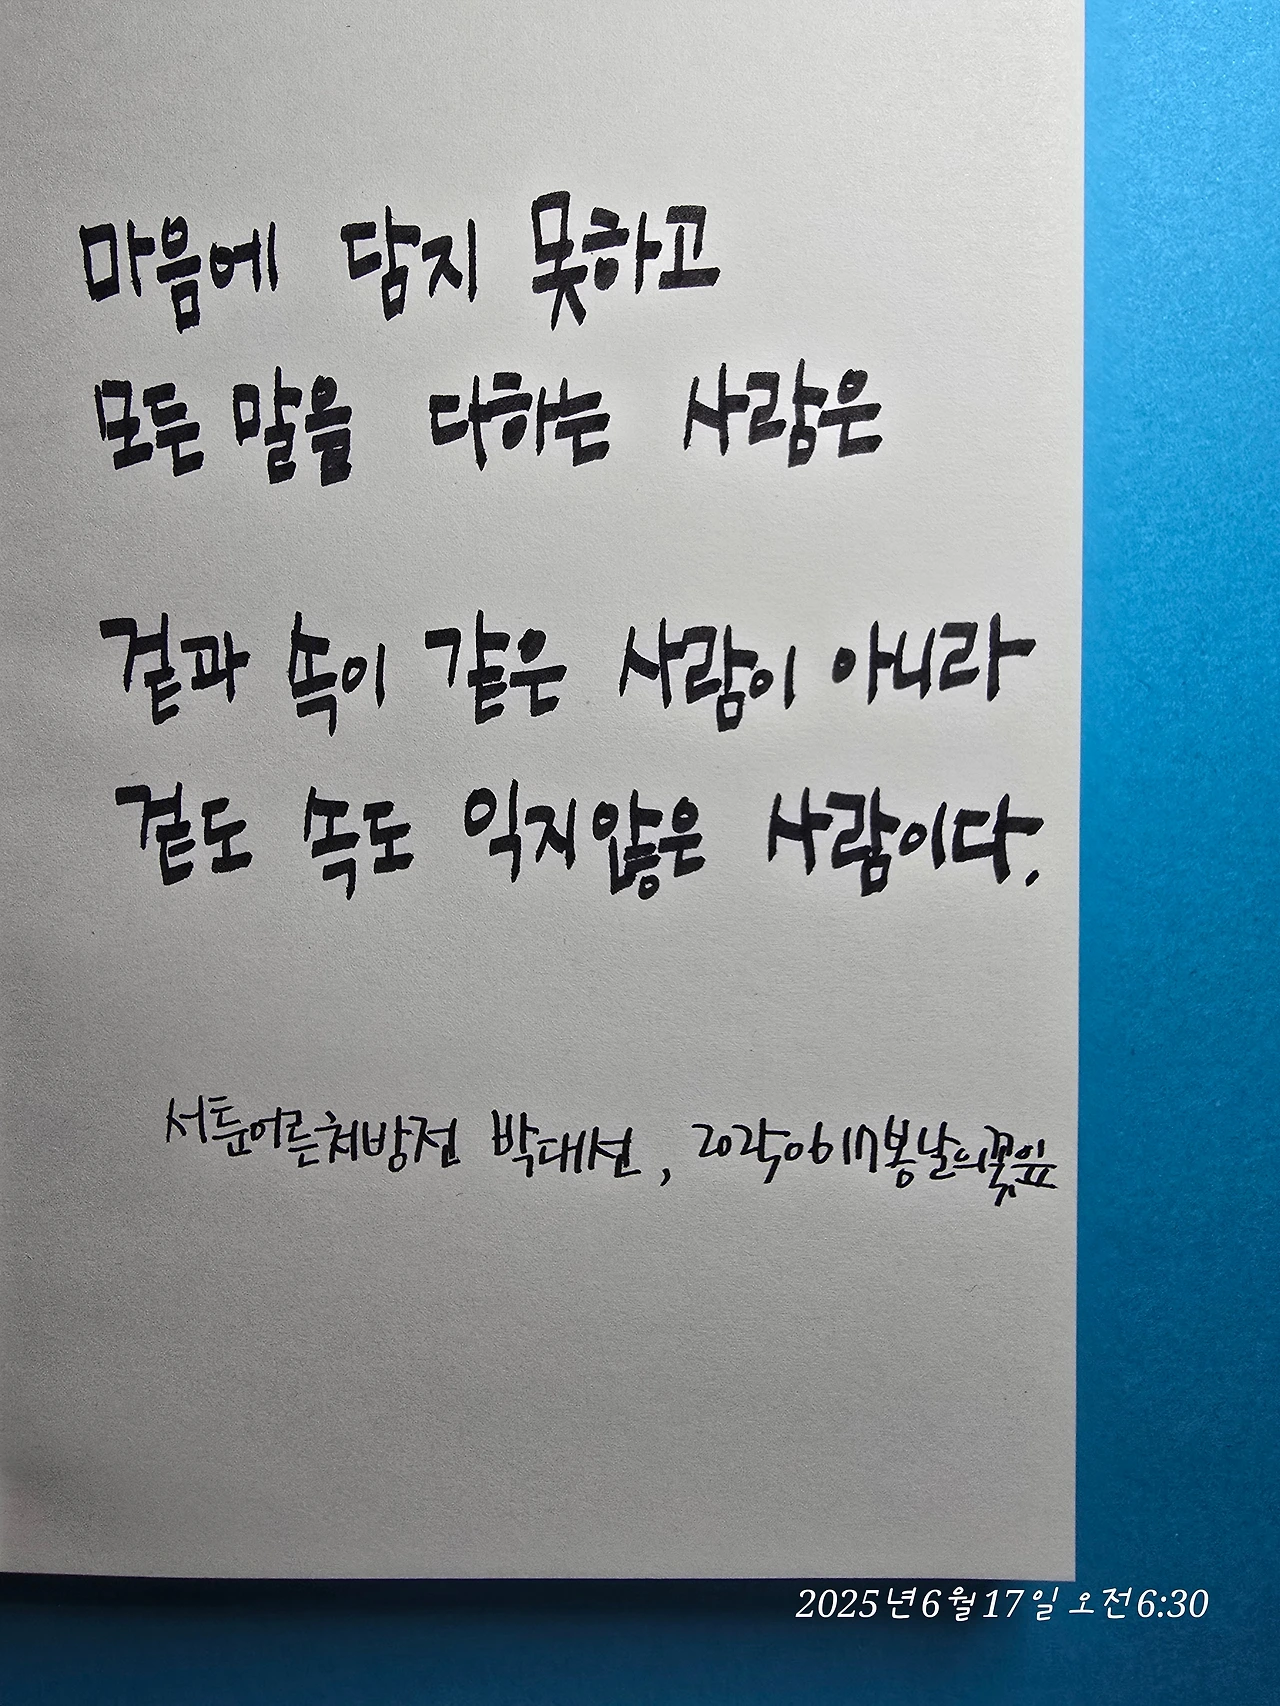 마음에 담지 못하고
모든 말을 다하는 사람은
겉과 속이 같은 사람이 아니라
겉도 속도 익지않은 사람이다.
서툰어른처방전 박대선, 20250617봄날의꽃잎
2025년6월17일 오전6:30